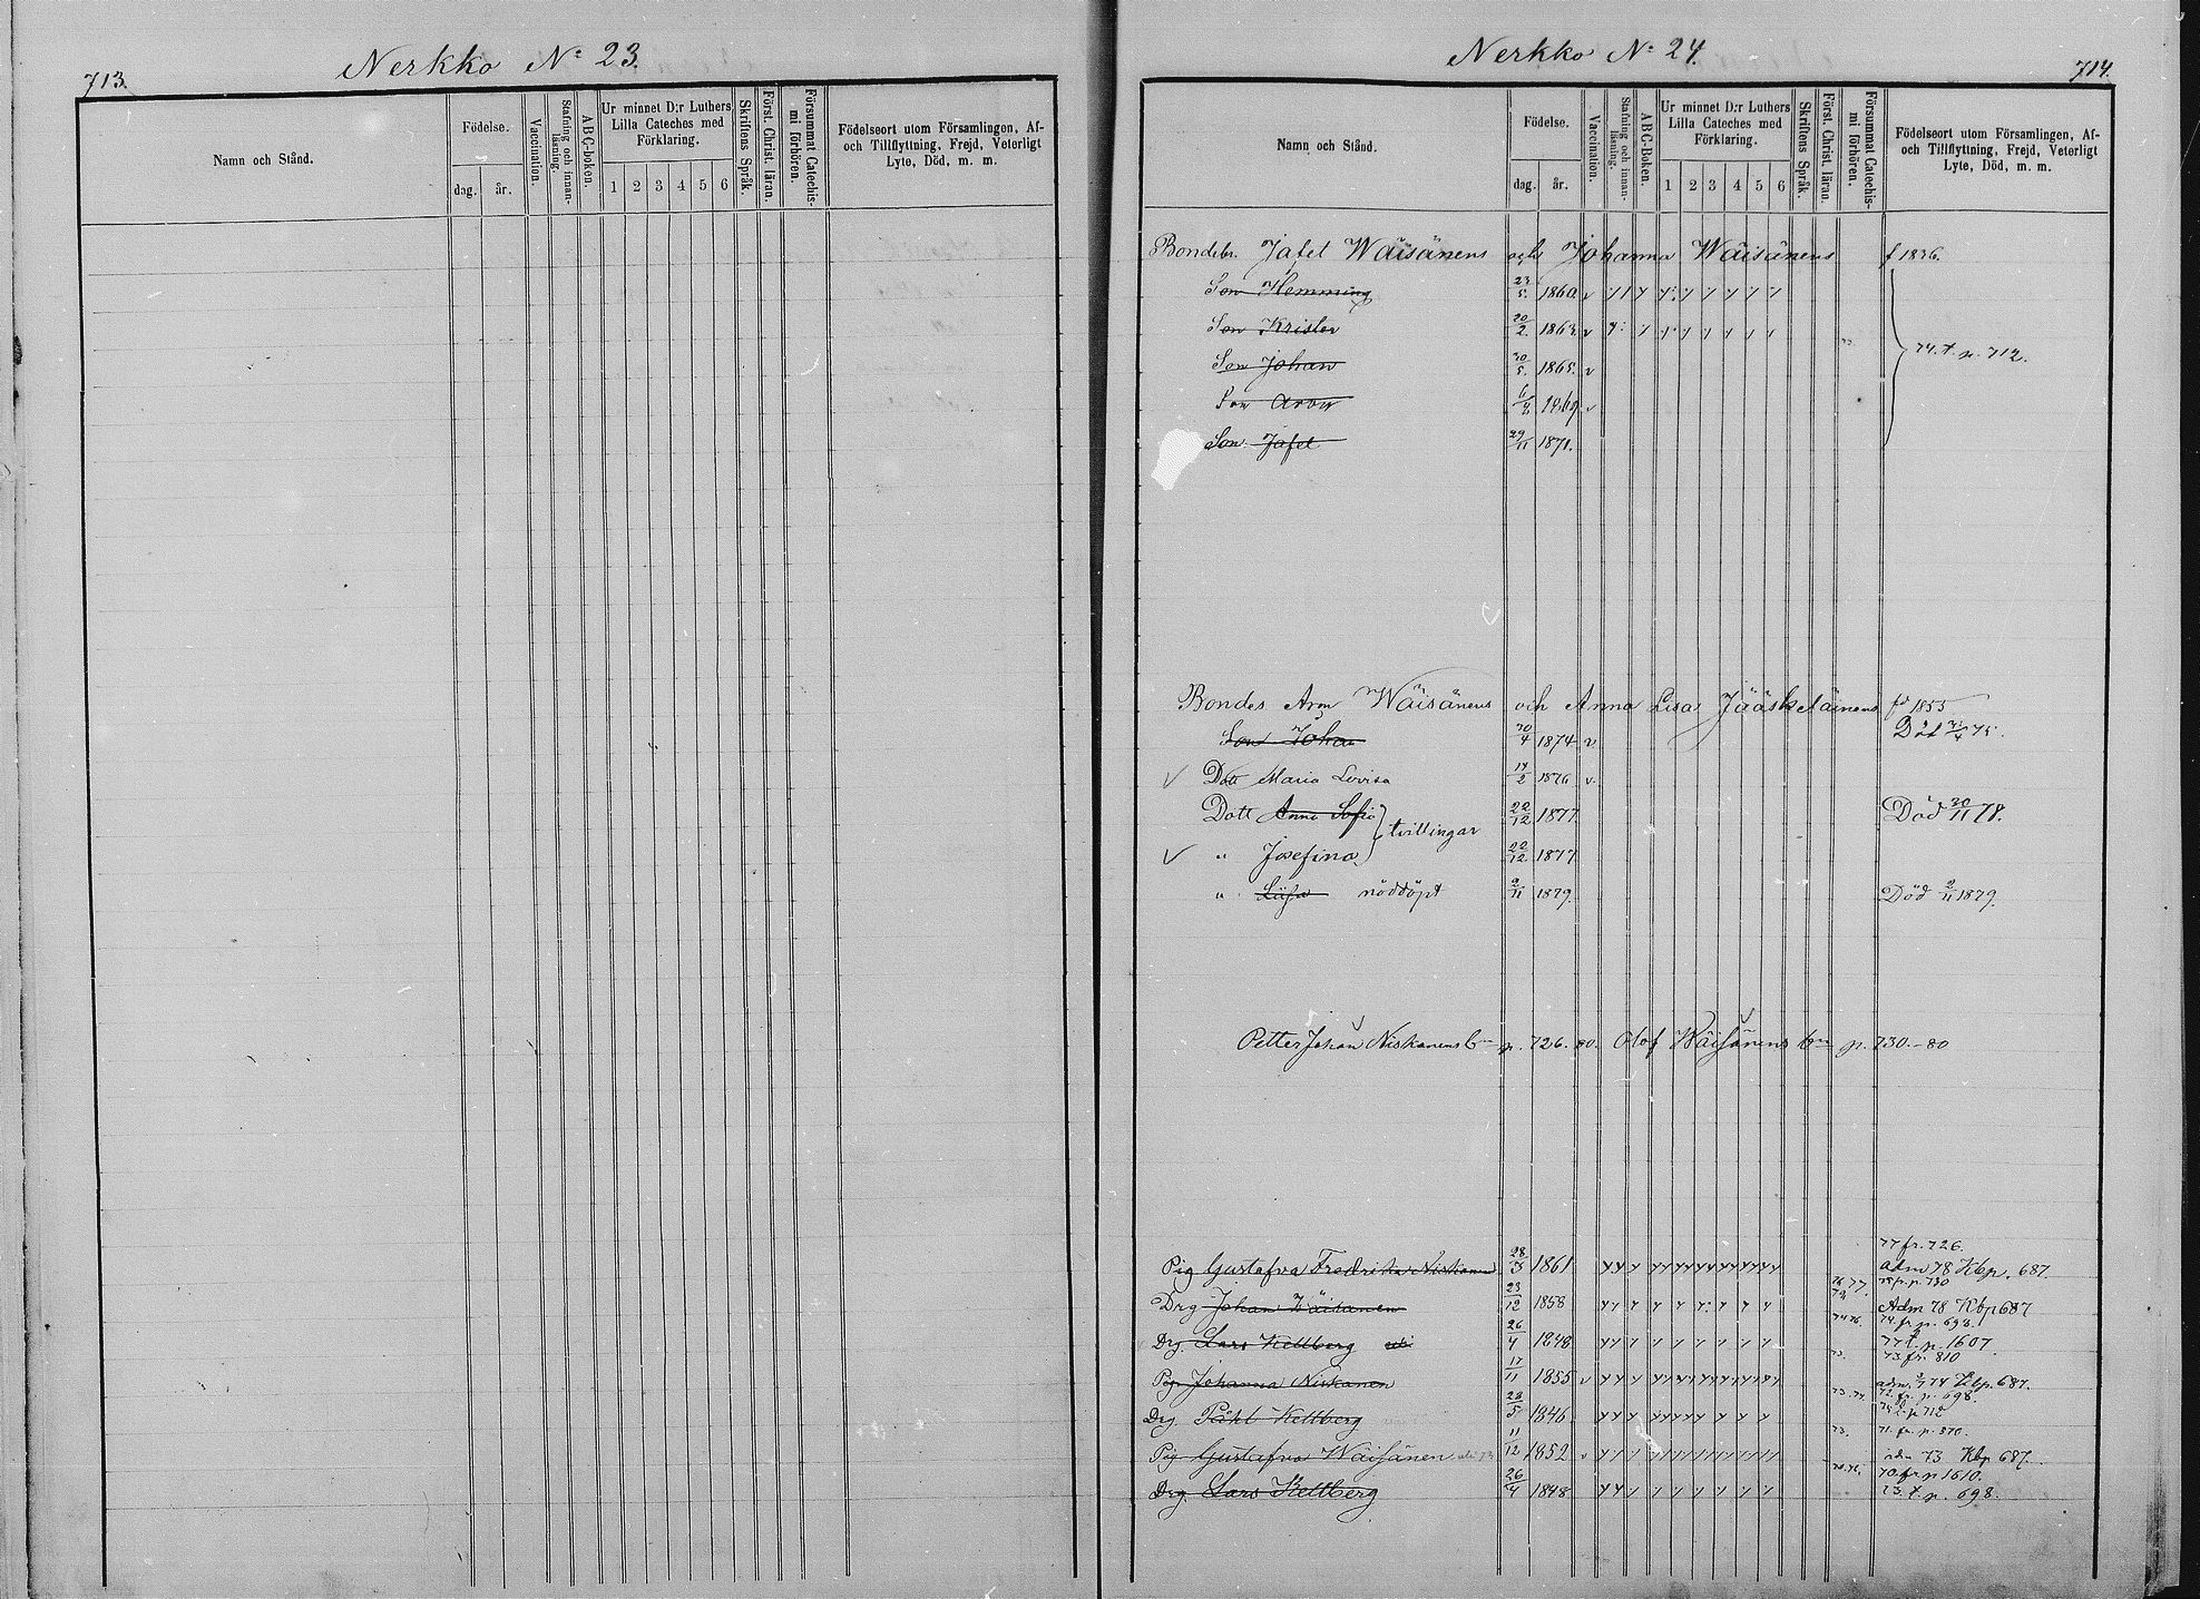 713.
Nerkko No 23.
Namn och Stånd.
Födelse.
dag.
år.
Vaccination.
Stafning och innan-
läsning.
ABC-boken.
Ur minnet D:r Luthers
Lilla Cateches med
Förklaring.
1 2 3 4 5 6
Skriftens Språk.
Först. Christ. läran.
Försummat Catechis-
mi förhören.
Födelseort utom Församlingen, Af-
och Tillflyttning, Frejd, Veterligt
Lyte, Död, m. m.
Nerkko No 24.
714.
Namn och Stånd.
Födelse.
dag.
år.
Vaccination.
Stafning och innan-
läsning.
ABC-Boken.
Ur minnet D:r Luthers
Lilla Cateches med
Förklaring.
1 2 3 4 5 6
Skriftens Språk.
Först. Christ. läran.
Försummat Catechis-
mi förhören.
Födelseort utom Församlingen, Af-
och Tillflyttning, Frejd, Veterligt
Lyte, Död, m. m.
Bondebr. Jafet Wäisänens och Johanna Wäisänens f 1836.
Son Hemming 23/5. 1860. v
Son Krister 20/2. 1863. v
74. t. p. 712.
Son Johan 30/5. 1865. v
Son Aron 1869. v
Son Jafet 29/11 1871.
Bondes Aron Wäisänens och Anna Lisa Jääskeläinens fd 1853
Son Johan 30/4 1874 v Död 75.
Dott Maria Lovisa 14/2 1876 v.
Dott Anna Sofia 22/12 1877 Död 30/11 78.
tvillingar
" Josefina 22/12 1877
" Liisa nöddöpt 2/11 1879. Död 2/11 1879.
Petter Johan Niskanens p. 726. 80. Olof Wäisänens p. 730. - 80
77 fr. 726.
Pig Gustafva Fredrika Niskanen 28/3 1861 adm 78 Kbp. 687.
p. 730
Drg Johan Wäisänen 23/12 1858 Adm 78 Kbp 687
74. fr p. 698.
Drg. Lars Kellberg 26/4 1848 77 t. p. 1607.
73. fr. 810
Pig. Johanna Niskanen 17/11 1855 v adm. 74 Kbp. 687.
72. fr. p. 698.
Drg. Påhl Kettberg 28/5 1846 p 712
71. fr. p. 570.
Pig Gustafva Wäisänen 11/12 1852 v adm 73 Kbp 687.
70. fr p 1610.
Drg. Lars Kellberg 26/4 1848 73. t. p. 698.